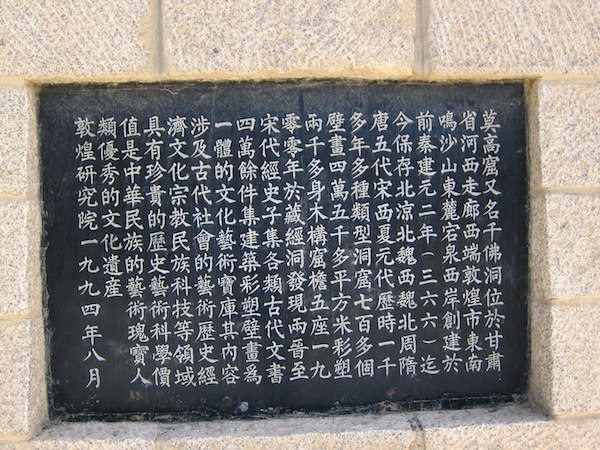 莫高窟又名千佛洞位於甘肅
省河西走廊西端敦煌市東南
鳴沙山東麓宕泉西岸創建於
前秦建元二年(三六六)迄
今保存北涼北魏西魏北周隋
唐五代宋西夏元代歷時一千
多年多種類型洞窟七百多個
壁畫四萬五千多平方米彩塑
兩千多身木構窟檐五座一九
零零年於藏經洞發現兩晉至
宋代經史子集各類古代文書
四萬餘件集建築彩塑壁畫爲
一體的文化藝術寶庫其内容
涉及古代社會的藝術歷史經
濟文化宗教民族科技等領域
具有珍貴的歷史藝術科學價
值是中華民族的藝術瑰寶人
類優秀的文化遺産
敦煌研究院一九九四年八月